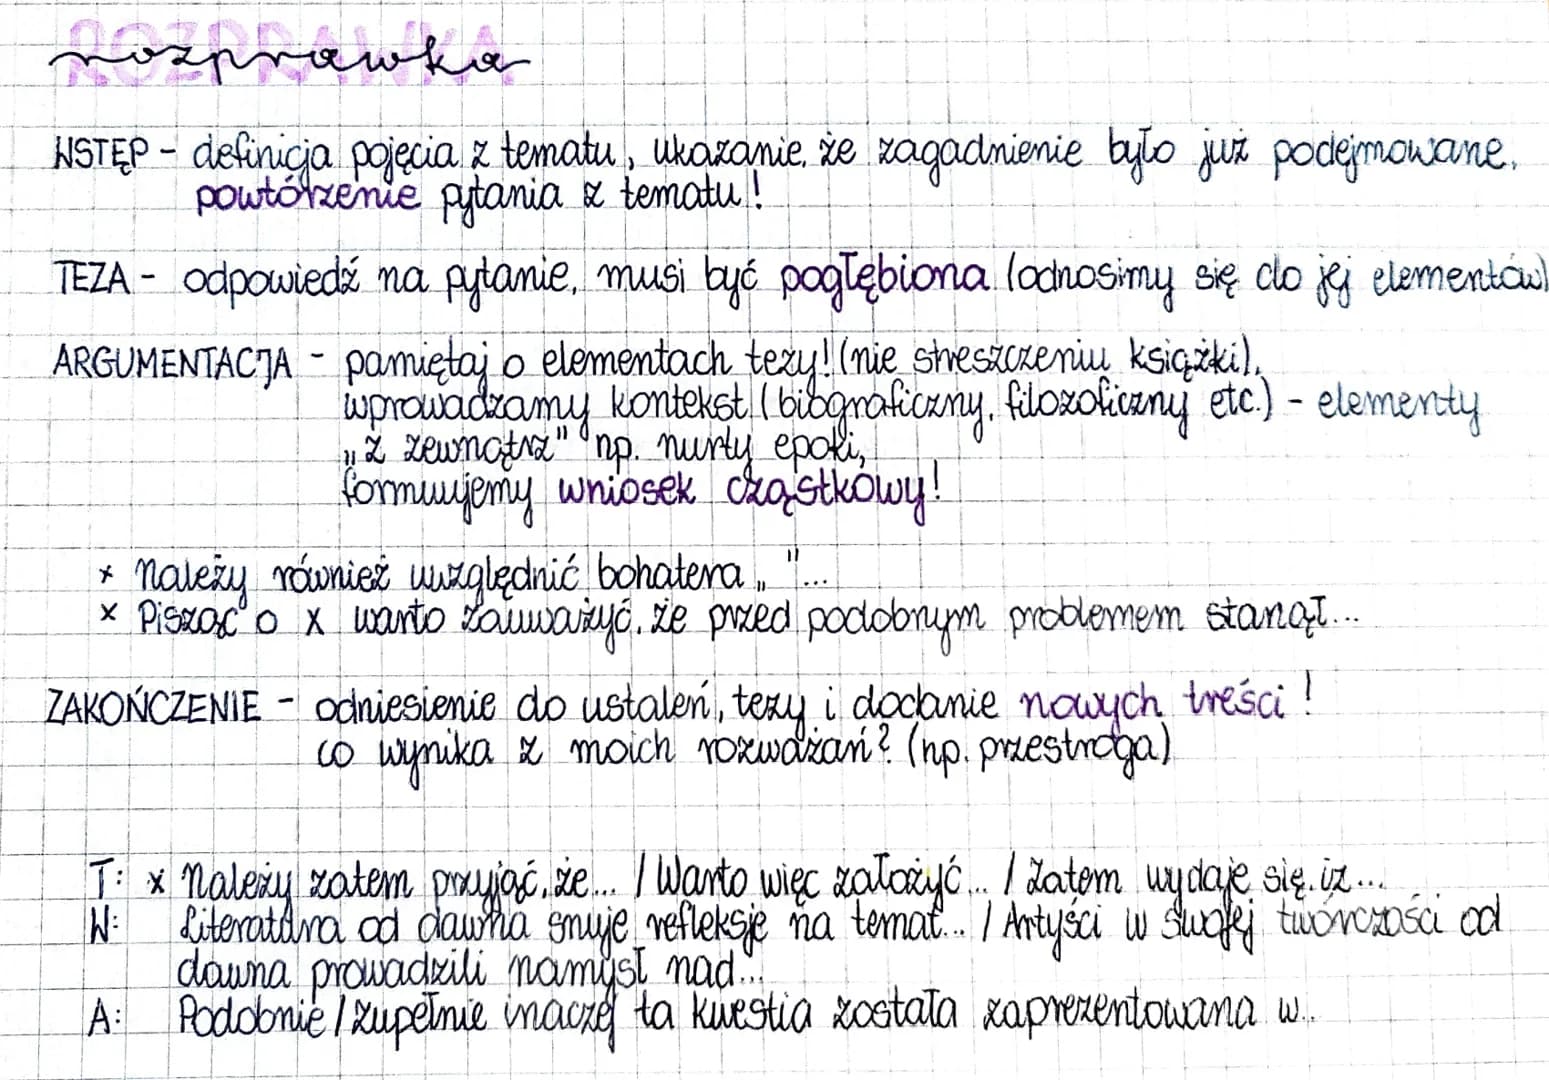 ROZPRAWKA
rozprawka
WSTĘP - definicja pojęcia z tematu, ukazanie, że zagadnienie było już podejmowane,
powtórzenie pytania z tematu!
TEZA - odpowiedź na pytanie, musi być pogłębiona (odnosimy się do jej elementów)
ARGUMENTACJA - pamiętaj o elementach tezy! (nie streszczeniu książki),
wprowadzamy kontekst (biograficzny, filozoficzny etc.) - elementy
„z zewnątrz" np. nurty epoki,
formuujemy wniosek cząstkowy!
x Należy również uwzględnić bohatera „ "...
x Pisząc o x warto zauważyć, że przed podobnym problemem stanął...
ZAKOŃCZENIE - odniesienie do ustaleń, tezy i dodanie nowych treści!
co wynika z moich rozważań? (np. przestroga)
T: x Należy zatem przyjąć, że... / Warto więc założyć... / Zatem wydaje się, iż...
W: Literatura od dawna snuje refleksje na temat... / Artyści w swojej twórczości od
dawna prowadzili namysł nad...
A: Podobnie / zupełnie inaczej ta kwestia została zaprezentowana w...